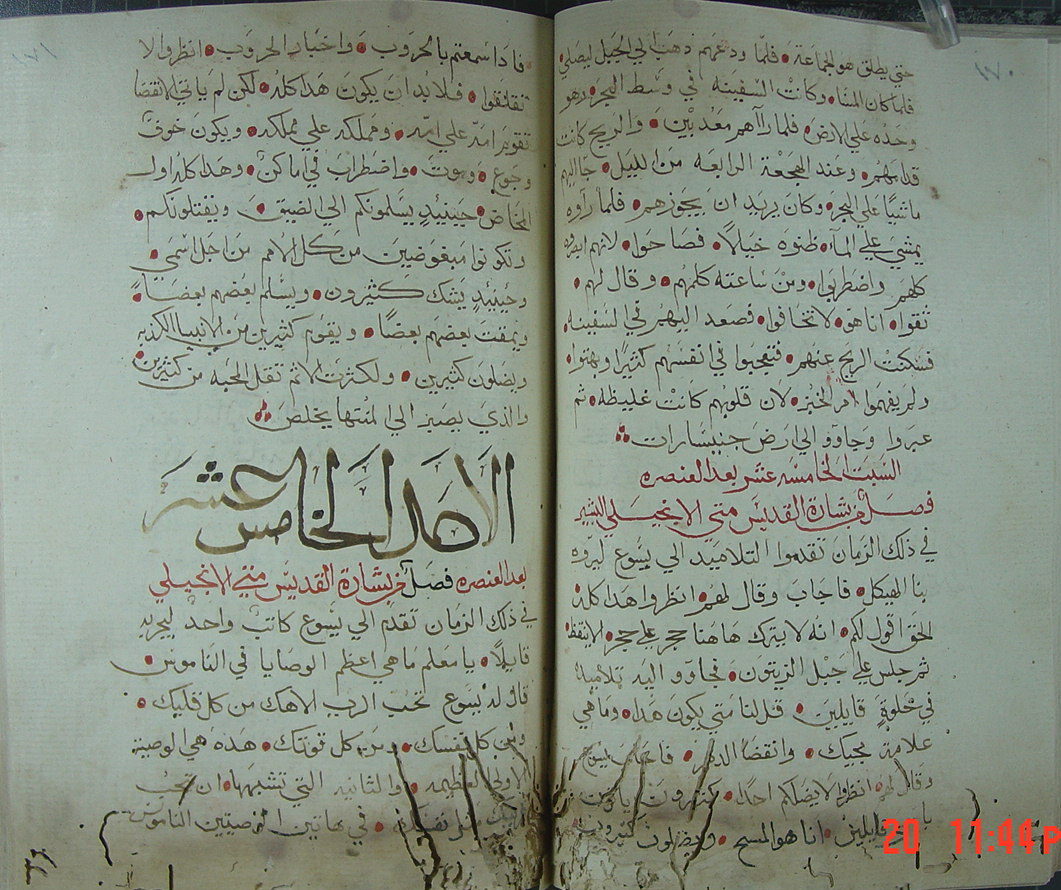 ١٧٠
حتي يطلق هو الجماعة • فلما ودعهم ذهب الي الجبل ليصلي
فلما كان المسا • وكانت السفينه في وسط البحر • وهو
وحده علي الارض • فلما راآهم معذبين • والريح كانت
قدامهم • وعند الهجعة الرابعه من الليل • جا اليهم
ماشيًا علي البحر • وكان يريد ان يجوزهم • فلما راوه
يمشي علي المآء • ظنوه خيالًا • فصاحوا • لانهم ابصروه
كلهم واضطربوا • ومن ساعته كلمهم • وقال لهم •
ثقوا • انا هو • لا تخافوا • فصعد اليهم في السفينه
فسكنت الريح عنهم • فتعجبوا في انفسهم كثيرًا وبهتوا
ولم يفهموا امر الخبز • لان قلوبهم كانت غليظه • ثم
عبروا وجاوو الي ارض جنيسارات
السبت الخامسه عشر بعد العنصره
فصل من بشارة القديس متي الانجيلي البشير
في ذلك الزمان تقدموا التلاميد الي يسوع ليروه
بنا الهيكل • فاجاب وقال لهم • انظروا هدا كله
الحق اقول لكم • انه لا يترك هاهنا حجر علي حجر • الا ينقظ
ثم جلس علي جبل الزيتون • فجاوو اليه تلاميده
في خلوةٍ قايلين • قل لنا متي يكون هدا • وما هي
علامة مجيك • وانقضا الدهر • فاجاب يسوع
وقال لهم • انظروا لا يضلكم احد • كثيرون ياتون
قايلين • انا هو المسيح • ويضلون كثيرون
١٧١
فادا سمعتم بالحروب • واخبار الحروب • انظروا لا
تقلقوا • فلا بد ان يكون هدا كله • لكن لم ياتي الانقضا
تقوم امه علي امه • ومملكه علي مملكه • ويكون خوف
وجوع • وموت • واضطراب في اماكن • وهدا كله اول
المخاض • حينيدٍ يسلمونكم الي الضيق • ويقتلونكم •
وتكونوا مبغوضين من كل الامم من اجل اسمي •
وحينيدٍ يشك كثيرون • ويسلم بعضهم بعضًا •
ويمقت بعضهم بعضًا • ويقوم كثيرين من الانبيا الكدبه
ويضلون كثيرين • ولكثرت الاثم تقل المحبه من كثيرين
والدي يصير الي المنتها يخلص
الاحد الخامس عشر
بعد العنصره فصل من بشارة القديس متي الانجيلي
في ذلك الزمان تقدم الي يسوع كاتب واحد ليجربه
قايلًا • يا معلم ما هي اعظم الوصايا في الناموس •
قال له يسوع تحب الرب الاهك من كل قلبك •
ومن كل نفسك • ومن كل قوتك • هده هي الوصية
الاولي العظيمه • والثانيه التي تشبهها • ان تحب
قريبك مثل نفسك • في هاتين الوصيتين الناموس
20 11:44P